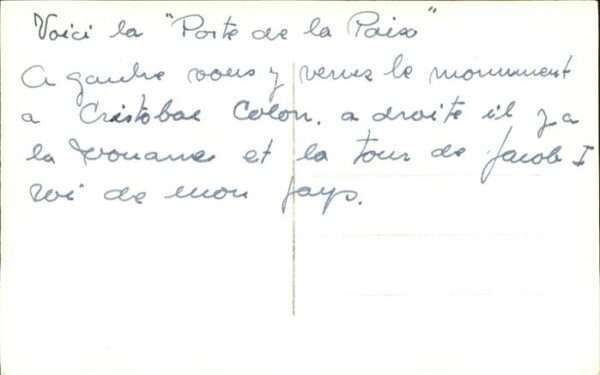 Voici la "Porte de la Paix"
A gauche vous y verez le monument
a Cristobal Colon, a droite il y a
la Douane et la tour de Jacob I
roi de mon pays.